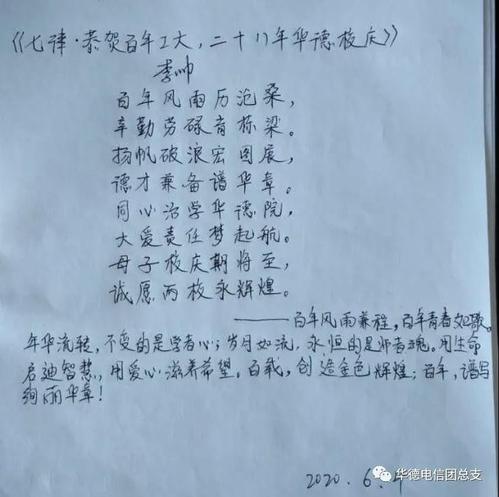 《七律·恭贺百年工大，二十八年华德校庆》
李帅
百年风雨历沧桑，
辛勤劳碌育栋梁。
扬帆破浪宏图展，
德才兼备谱华章。
同心治学华德院，
大爱责任梦起航。
母子校庆期将至，
诚愿两校永辉煌。
——百年风雨兼程，百年青春如歌。
年华流转，不变的是学者心；岁月如流，永恒的是师者魂。用生命
启迪智慧，用爱心滋养希望。百载，创造金色辉煌；百年，谱写
绚丽华章！
2020.6.4
华德电信团总支